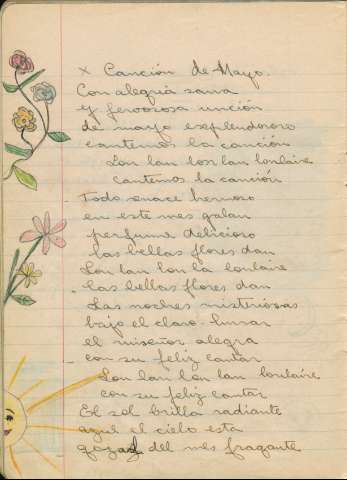 x Canción de Mayo.
Con alegria sana
y fervorosa unción
de mayo esplendoroso
cantemos la canción
Lon lan lon lan lonlaire
cantemos la canción
Todo renace hermoso
en este mes galan
perfume delicioso
las bellas flores dan
Lon lan lon la lonlaire
las bellas flores dan
Las noches misteriosas
bajo el claro lunar
el ruiseñor alegra
con su feliz cantar
Lon lan lon lan lonlaire
con su feliz cantar
El sol brilla radiante
azul el cielo esta
del mes fragante